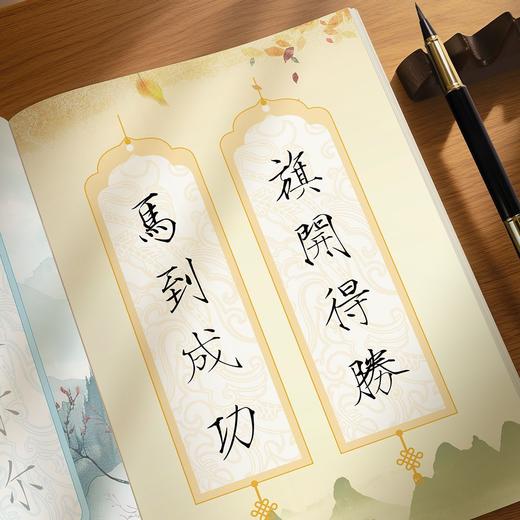 旗開得勝
馬到成功